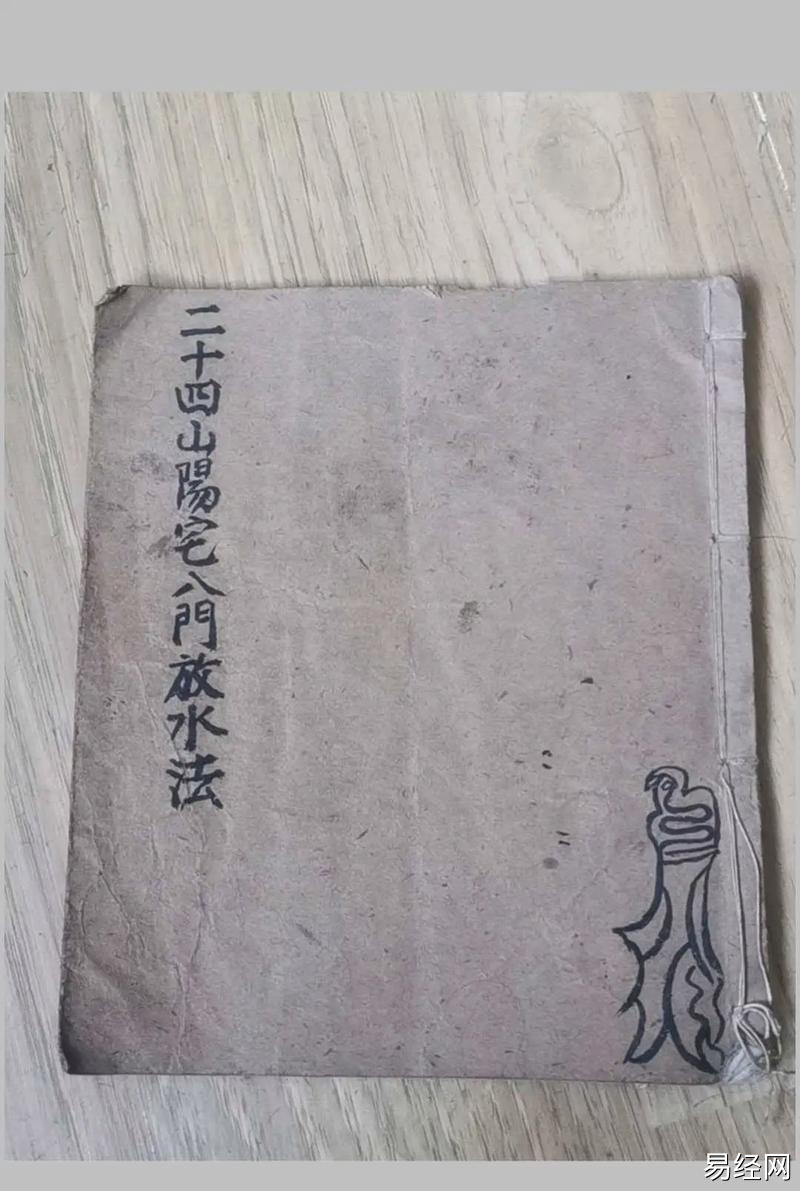 二十四山陽宅八門放水法
易经网